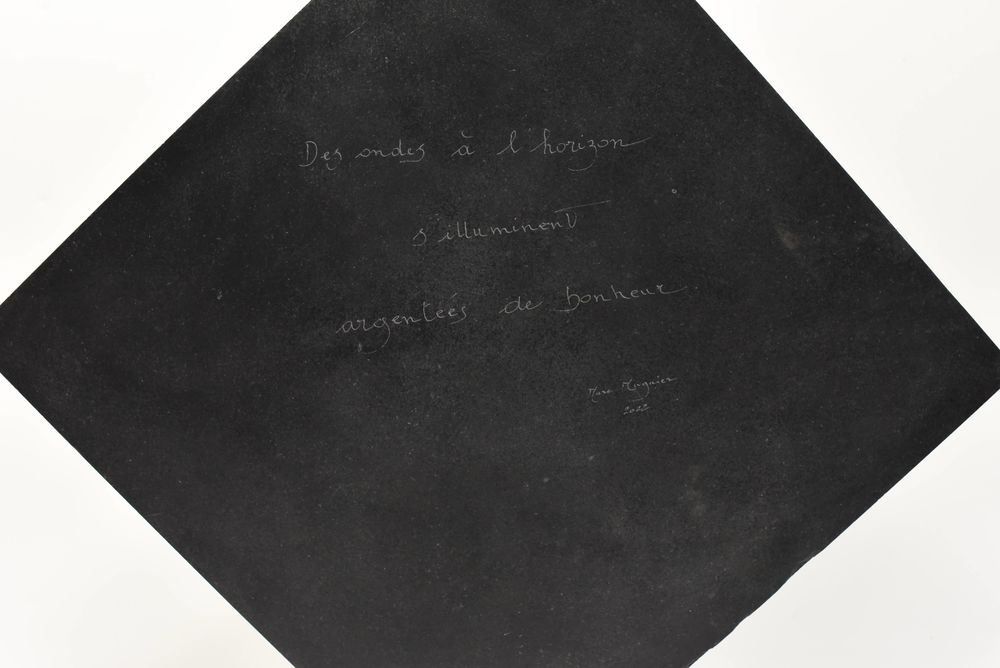 Des ondes à l'horizon
s'illuminent
argentées de bonheur.
Marc Magnier
2022